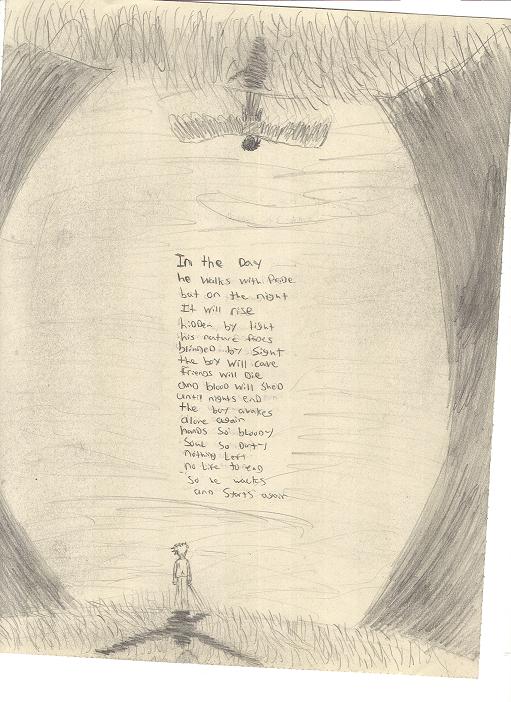 In the Day
he walks with Pride
but on the night
It will rise
hidden by light
his nature fades
blinded by Sight
the boy will cave
friends will Die
and blood will Shed
until nights end
the boy awakes
alone again
hands So bloody
Soul So Dirty
nothing Left
no Life to end
So he walks
and Starts again